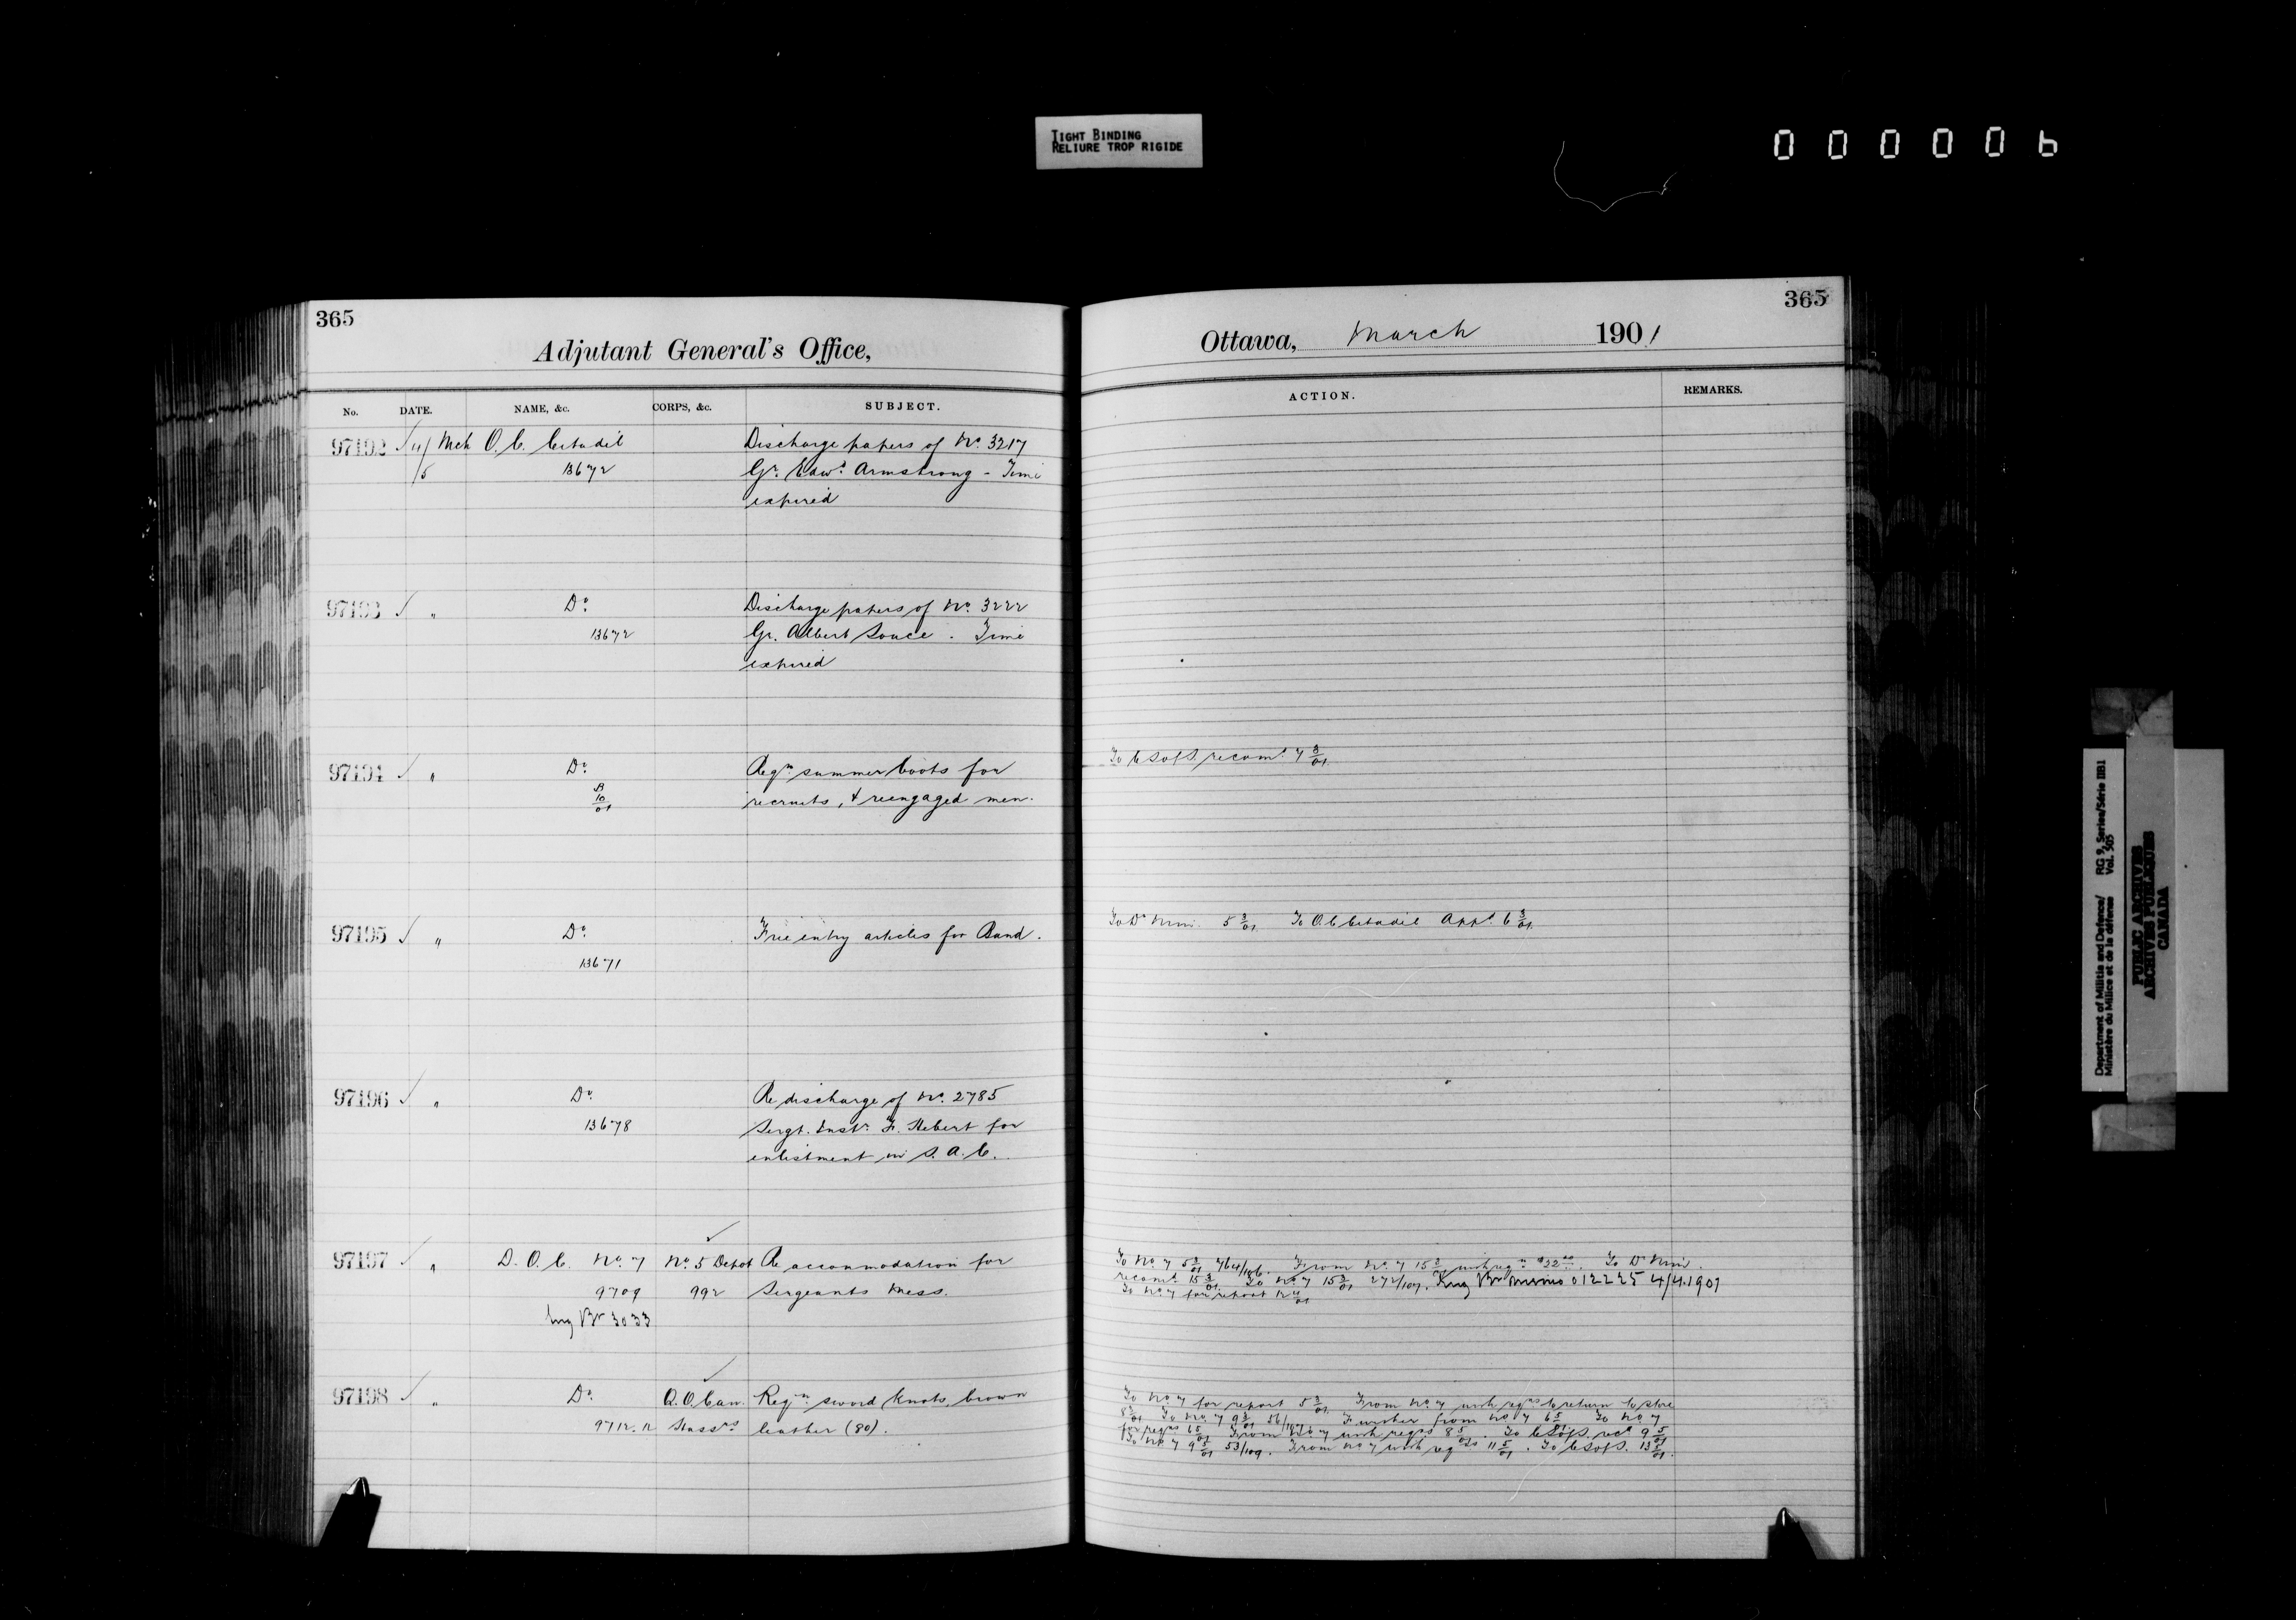 TIGHT BINDING
RELIURE TROP RIGIDE
000006
365
Adjutant General's Office,
No. DATE. NAME, &c. CORPS, &c. SUBJECT.
97192 4/ Mch O. C. Citadel Discharge papers of No. 3217
/5 13672 Gr. Edwd. Armstrong - Time
expired
97193 " Do. Discharge papers of No. 3222
13672 Gr. Albert Souce. Time
expired
97194 " Do. Reqn. summer boots for
B 10/01 recruits, & reengaged men.
97195 " Do. Free entry articles for Band.
13671
97196 " Do. Re discharge of No. 2785
13678 Sergt. Instr. F. Hebert for
enlistment in S. A. C.
97197 " D. O. C. No. 7 No. 5 Depot Re accommodation for
9709 992 Sergeants Mess.
Eng Br 3033
97198 " Do. Q. O. Can. Reqn. sword knots, brown
9712.12 Hussrs leather (80).
365
Ottawa, March 1901
ACTION. REMARKS.
To C S of S, recomd. 7 3/01
To D. Min. 5 3/01 To O. C Citadel Appd. 6 3/01
To No. 7 5 3/01 764/106. From No. 7 15 3/01 with reqn. $22.00. To D. Min.
recomd. 15 3/01. To No. 7 15 3/01 272/107. Eng Br memo 012225 4/4.1901
To No. 7 for report 12 4/01
To No. 7 for report 5 3/01. From No. 7 with reqns to return to store
8 3/01 To No. 7 9 3/01 56/107. Further from No. 7 6 5 To No. 7
for reqns 6 5/01 From No. 7 with reqns 8 5/01. To C S of S. 9 5/01
To No. 7 9 5/01 53/109. From No. 7 with reqns 11 5/01. To C S of S. 13 5/01.
Department of Militia and Defence/ RG 9, Series/Série IIB1
Ministère du Milice et de la défense Vol. 505
PUBLIC ARCHIVES
ARCHIVES PUBLIQUES
CANADA